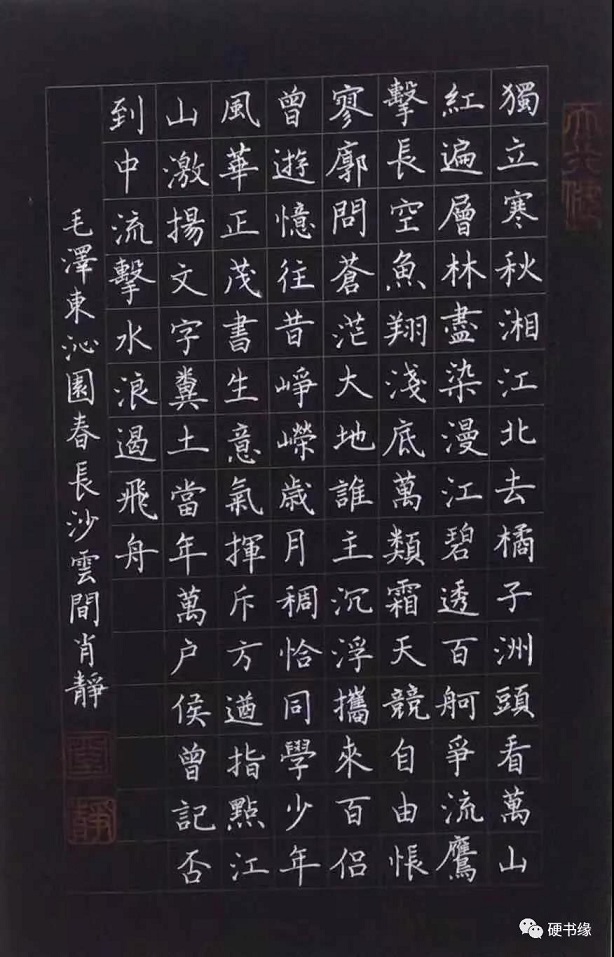 獨立寒秋湘江北去橘子洲頭看萬山
紅遍層林盡染漫江碧透百舸爭流鷹
擊長空魚翔淺底萬類霜天競自由悵
寥廓問蒼茫大地誰主沉浮攜來百侶
曾遊憶往昔崢嶸歲月稠恰同學少年
風華正茂書生意氣揮斥方遒指點江
山激揚文字糞土當年萬户侯曾記否
到中流擊水浪遏飛舟
毛澤東沁園春長沙雲間肖靜
硬书缘